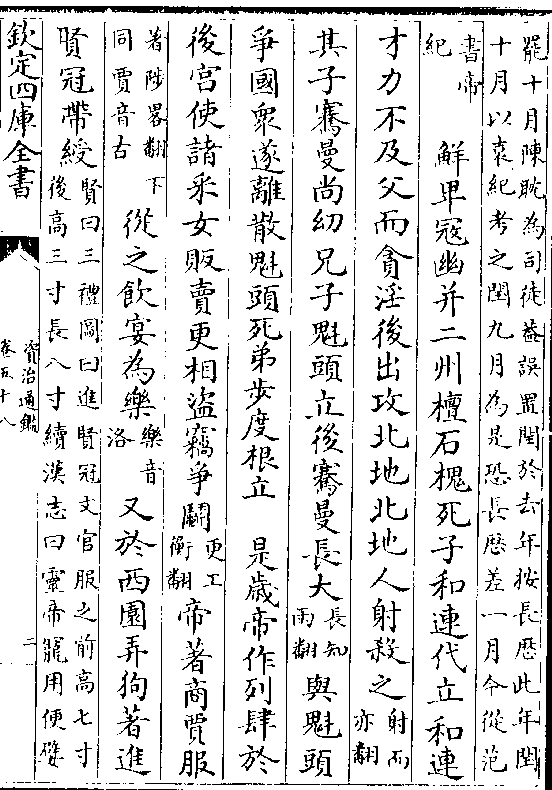 罷十月陳耽為司徒葢誤置閏於去年按長厯此年閏
十月以袁紀考之閏九月為是恐長厯差一月今從范
書帝
紀
鮮卑冦幽并二州檀石槐死子和連代立和連
才力不及父而貪淫後出攻北地北地人射殺之射而
亦翻
其子騫曼尚幼兄子魁頭立後騫曼長大長知
兩翻
與魁頭
爭國衆遂離散魁頭死弟步度根立 是歲帝作列肆於
後宫使諸采女販賣更相盜竊爭鬭更工
衡翻
帝著商賈服
著陟畧翻下
同賈音古
從之飲宴為樂樂音
洛
又於西園弄狗著進
賢冠帶綬賢曰三禮圖曰進賢冠文官服之前高七寸
後高三寸長八寸續漢志曰靈帝寵用便嬖
欽定四庫全書
資治通鑑
卷五十八
二